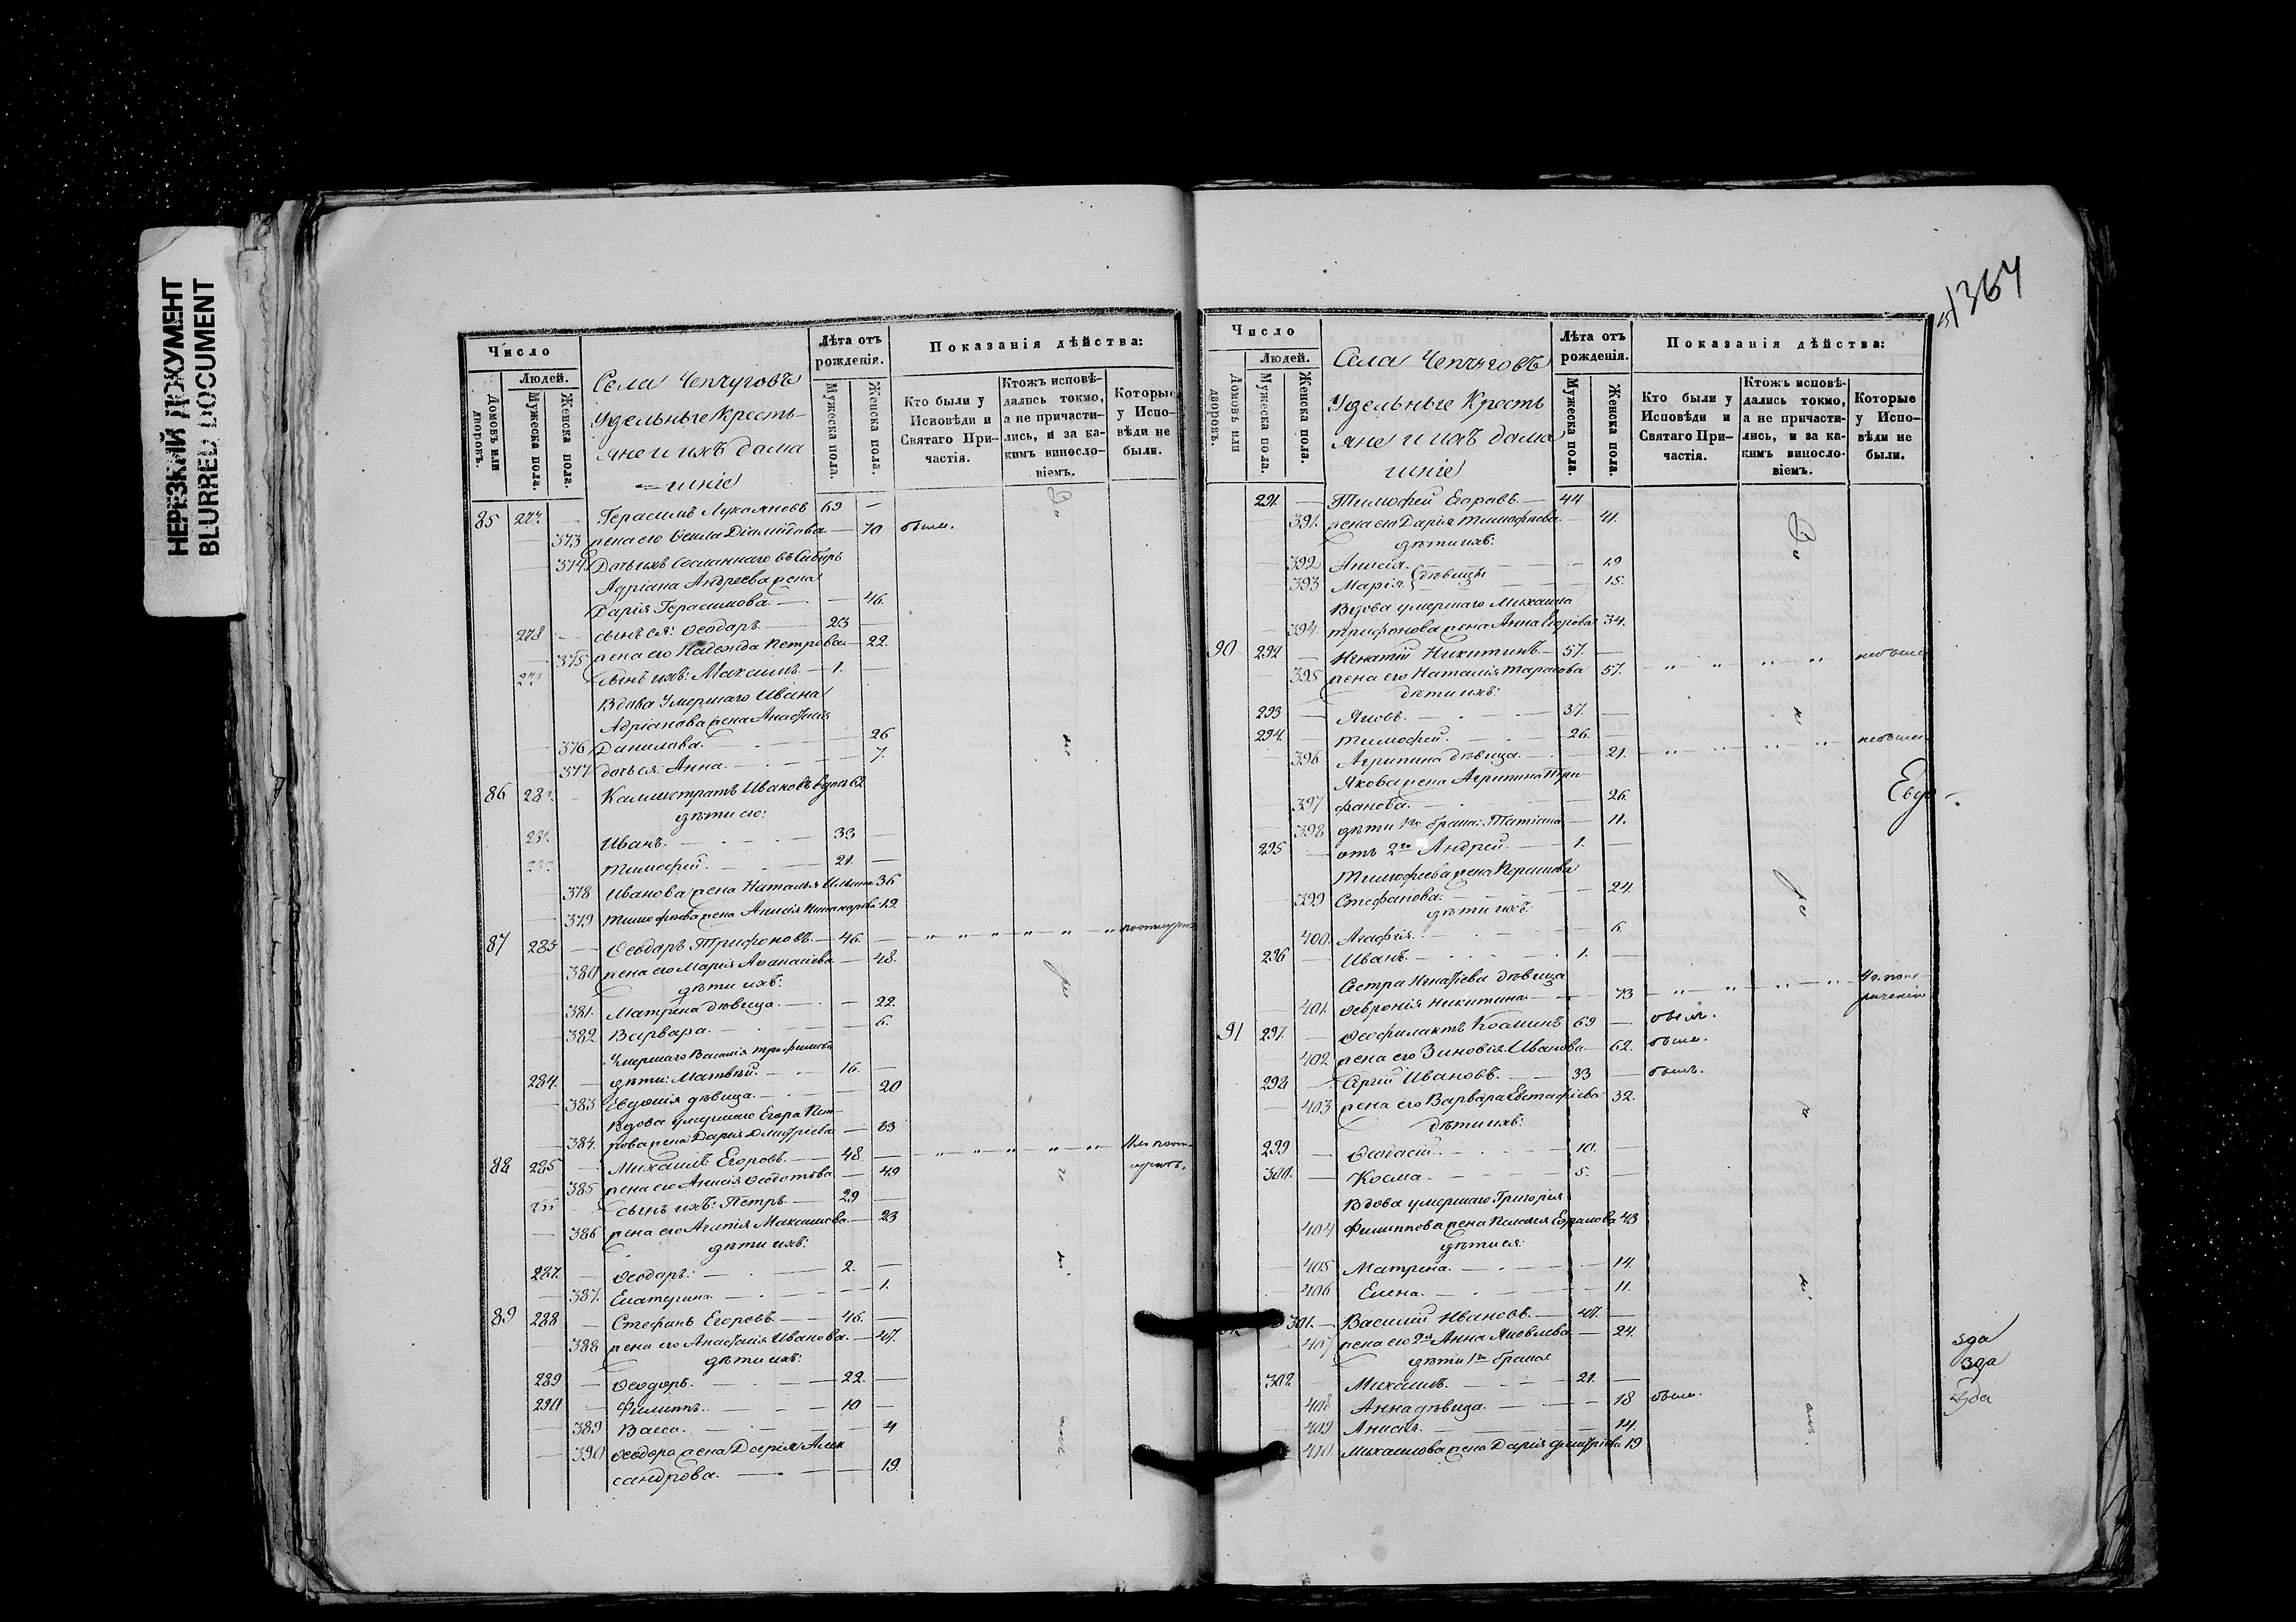 НЕРЕЗКИЙ ДОКУМЕНТ
BLURRED DOCUMENT
Число
Людей.
Домовъ или дворовъ.
Мужеска пола.
Женска пола.
Села Чепчуговъ
Удельные Кресть-
яне и ихъ дома
=шніе
Лѣта отъ рожденія.
Мужеска пола.
Женска пола.
Показанія дѣйства:
Кто были у Исповѣди и Святаго Причастія.
Ктожъ исповѣ-
дались токмо,
а не причасти-
лись, и за ка-
кимъ виносло-
віемъ.
Которые
у Испо-
вѣди не
были.
85 Герасимъ Лукояновъ 69 —
373 жена его 70 были.
374 Дочь ихъ Сосланнаго въ Сибирь
Адріана Андреева жена
Дарія Герасимова. — 46.
278 сынъ ея: Ѳеодоръ 23 —
375 жена его Надежда Петрова — 22.
сынъ ихъ: Максимъ — 1.
Вдова Умершаго Ивана
Адріанова жена Анастасія
376 Данилова. 26
377 дочь ея: Анна. 7.
86 Каллистратъ Ивановъ вдовъ 62
дѣти его:
Иванъ. 33 —
Тимофей. 21. —
378 Иванова жена Наталья 36
379 Тимофеева жена Анисія 19.
87 283 Ѳеодоръ Трифоновъ. — 46. —
380 жена его Марія Аѳанасіева — 48.
дѣти ихъ:
381. Матрена дѣвица. — 22.
382 Варвара. — 6.
Умершаго Василія Трофимова
284. дѣти: Матвѣй. 16. —
383 Евдокія дѣвица. — 20
Вдова умершаго Егора Пет-
384. рова жена Дарія Дмитріева — 63
88 285 Михаилъ Егоровъ. — 48. —
385 жена его Анисія Ѳеодотова — 49
сынъ ихъ: Петръ. — 29 —
386 жена его Агапія Максимова — 23
дѣти ихъ:
287. Ѳеодоръ: — 2. —
387. Екатерина. — 1.
89 288 Стефанъ Егоровъ. — 46. —
388 жена его Анастасія Иванова. — 47.
дѣти ихъ:
289 Ѳеодоръ. 22. —
290 Филиппъ. — 10 —
389 Васса. — 4
390 Ѳеодора жена Дарія Алек
сандрова. — 19.
1367
Число
Людей.
Домовъ или дворовъ.
Мужеска пола.
Женска пола.
Села Чепчуговъ
Удельные Кресть
яне и ихъ дома
шніе
Лѣта отъ рожденія.
Мужеска пола.
Женска пола.
Показанія дѣйства:
Кто были у Исповѣди и Святаго Причастія.
Ктожъ исповѣ-
дались токмо,
а не причасти-
лись, и за ка-
кимъ виносло-
віемъ.
Которые
у Испо-
вѣди не
были.
291. — Тимофей Егоровъ. — 44
391. жена его Дарія Тимофеева. 41.
дѣти ихъ:
392 Анисія. дѣвицы — 19
393 Марія. — 15.
Вдова умершаго Михаила
394 Трифонова жена Анна Егорова 34.
90 292 — Игнатій Никитинъ — 57. — небыли
395 жена его Наталія Тарасова 57.
дѣти ихъ:
293 — Яковъ. — 37. —
294. — Тимофей. — 26. — небыли
396 Агрипина дѣвица. — 21.
Якова жена Агрипина Три-
397 фонова. — 26.
398 дѣти 1го брака: Татіана — 11.
295 — отъ 2го Андрей. — 1. —
Тимофеева жена
399 Стефанова. — 24.
дѣти ихъ:
400. Агафія. 6.
296 — Иванъ. 1. —
Сестра Игнатіева дѣвица
401. Ѳевронія Никитина — 73
91 297. Ѳеофилактъ Козминъ 69 — былъ.
402 жена его Зиновія Иванова — 62. была.
298 Сергій Ивановъ. — 33 — былъ.
403 жена его Варвара Евстафіева 32.
дѣти ихъ:
299 — Ѳеодосій. 10. —
300. — Косма. — 5. —
Вдова умершаго Григорія
404 Филиппова жена Пелагея 43
дѣти ея:
405 Матрена. — 14.
406 Елена. — 11.
301. — Василій Ивановъ. — 47. —
407 жена его 2я Анна Яковлева — 24.
дѣти 1го брака
302 Михаилъ. — 21. —
408 Анна дѣвица. — 18 была.
409 Анисія. — 14.
410. Михаилова жена Дарія Дмитріева 19